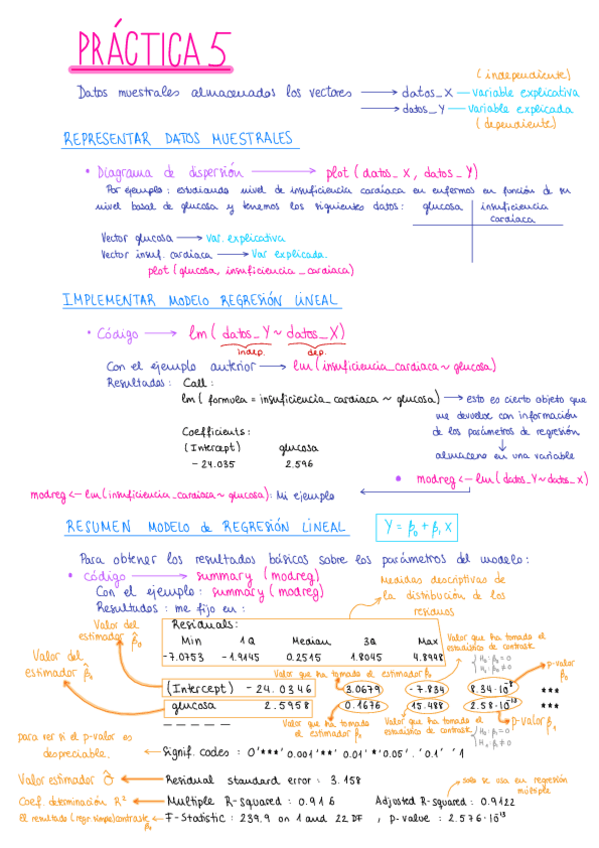 PRÁCTICA 5
(independiente)
Datos muestrales almacenados los vectores → datos_X — variable explicativa
→ datos_Y — variable explicada
(dependiente)
REPRESENTAR DATOS MUESTRALES
* Diagrama de dispersión → plot (datos_X, datos_Y)
Por ejemplo: estudiando nivel de insuficiencia cardíaca en enfermos en función de su
nivel basal de glucosa y tenemos los siguientes datos: glucosa insuficiencia
cardiaca
Vector glucosa → var. explicativa
Vector insuf. cardiaca → Var explicada.
plot (glucosa, insuficiencia_cardiaca)
IMPLEMENTAR MODELO REGRESIÓN LINEAL
* Código → lm ( datos_Y ~ datos_X)
indep. dep.
Con el ejemplo anterior → lm (insuficiencia_cardiaca ~ glucosa)
Resultados: Call:
lm ( formula = insuficiencia_cardiaca ~ glucosa) → esto es cierto objeto que
me devuelve con información
Coefficients: de los parámetros de regresión
(Intercept) glucosa ↓
-24.035 2.596 almaceno en una variable
• modreg <- lm (datos_Y~datos_X)
modreg <- lm (insuficiencia_cardiaca ~ glucosa): Mi ejemplo
RESUMEN MODELO de REGRESIÓN LINEAL Y = β₀ + β₁ X
Para obtener los resultados básicos sobre los parámetros del modelo:
* código → summary (modreg)
Con el ejemplo: summary (modreg)
Resultados: me fijo en:
Medidas descriptivas de
la distribución de los
residuos
Valor del
estimador β̂₀
Residuals:
Min 1Q Median 3Q Max
-7.0753 -1.9145 0.2515 1.8045 4.8998
Valor que ha tomado el
estadístico de contraste
H₀: β₀ = 0
H₁: β₀ ≠ 0
p-valor
β₀
Valor del
estimador β̂₁
Valor que ha tomado el estimador β₀
(Intercept) -24.0346 3.0679 -7.834 8.34·10⁻⁸ ***
glucosa 2.5958 0.1676 15.488 2.58·10⁻¹³ ***
Valor que ha tomado
el estimador β₁
Valor que ha tomado el
estadístico de contraste
H₀: β₁ = 0
H₁: β₁ ≠ 0
p-valor β₁
para ver si el p-valor es
despreciable. ← Signif. codes: 0'***' 0.001'**' 0.01'*'0.05'.'0.1' '1
Valor estimador σ̂ ← Residual standard error: 3.158
solo se usa en regresión
múltiple
Coef. determinación R² ← Multiple R-squared: 0.916 Adjusted R-squared: 0.9122
El resultado (regr simple) contraste β₁ ← F-Statistic: 239.9 on 1 and 22 DF , p-value: 2.576·10⁻¹³